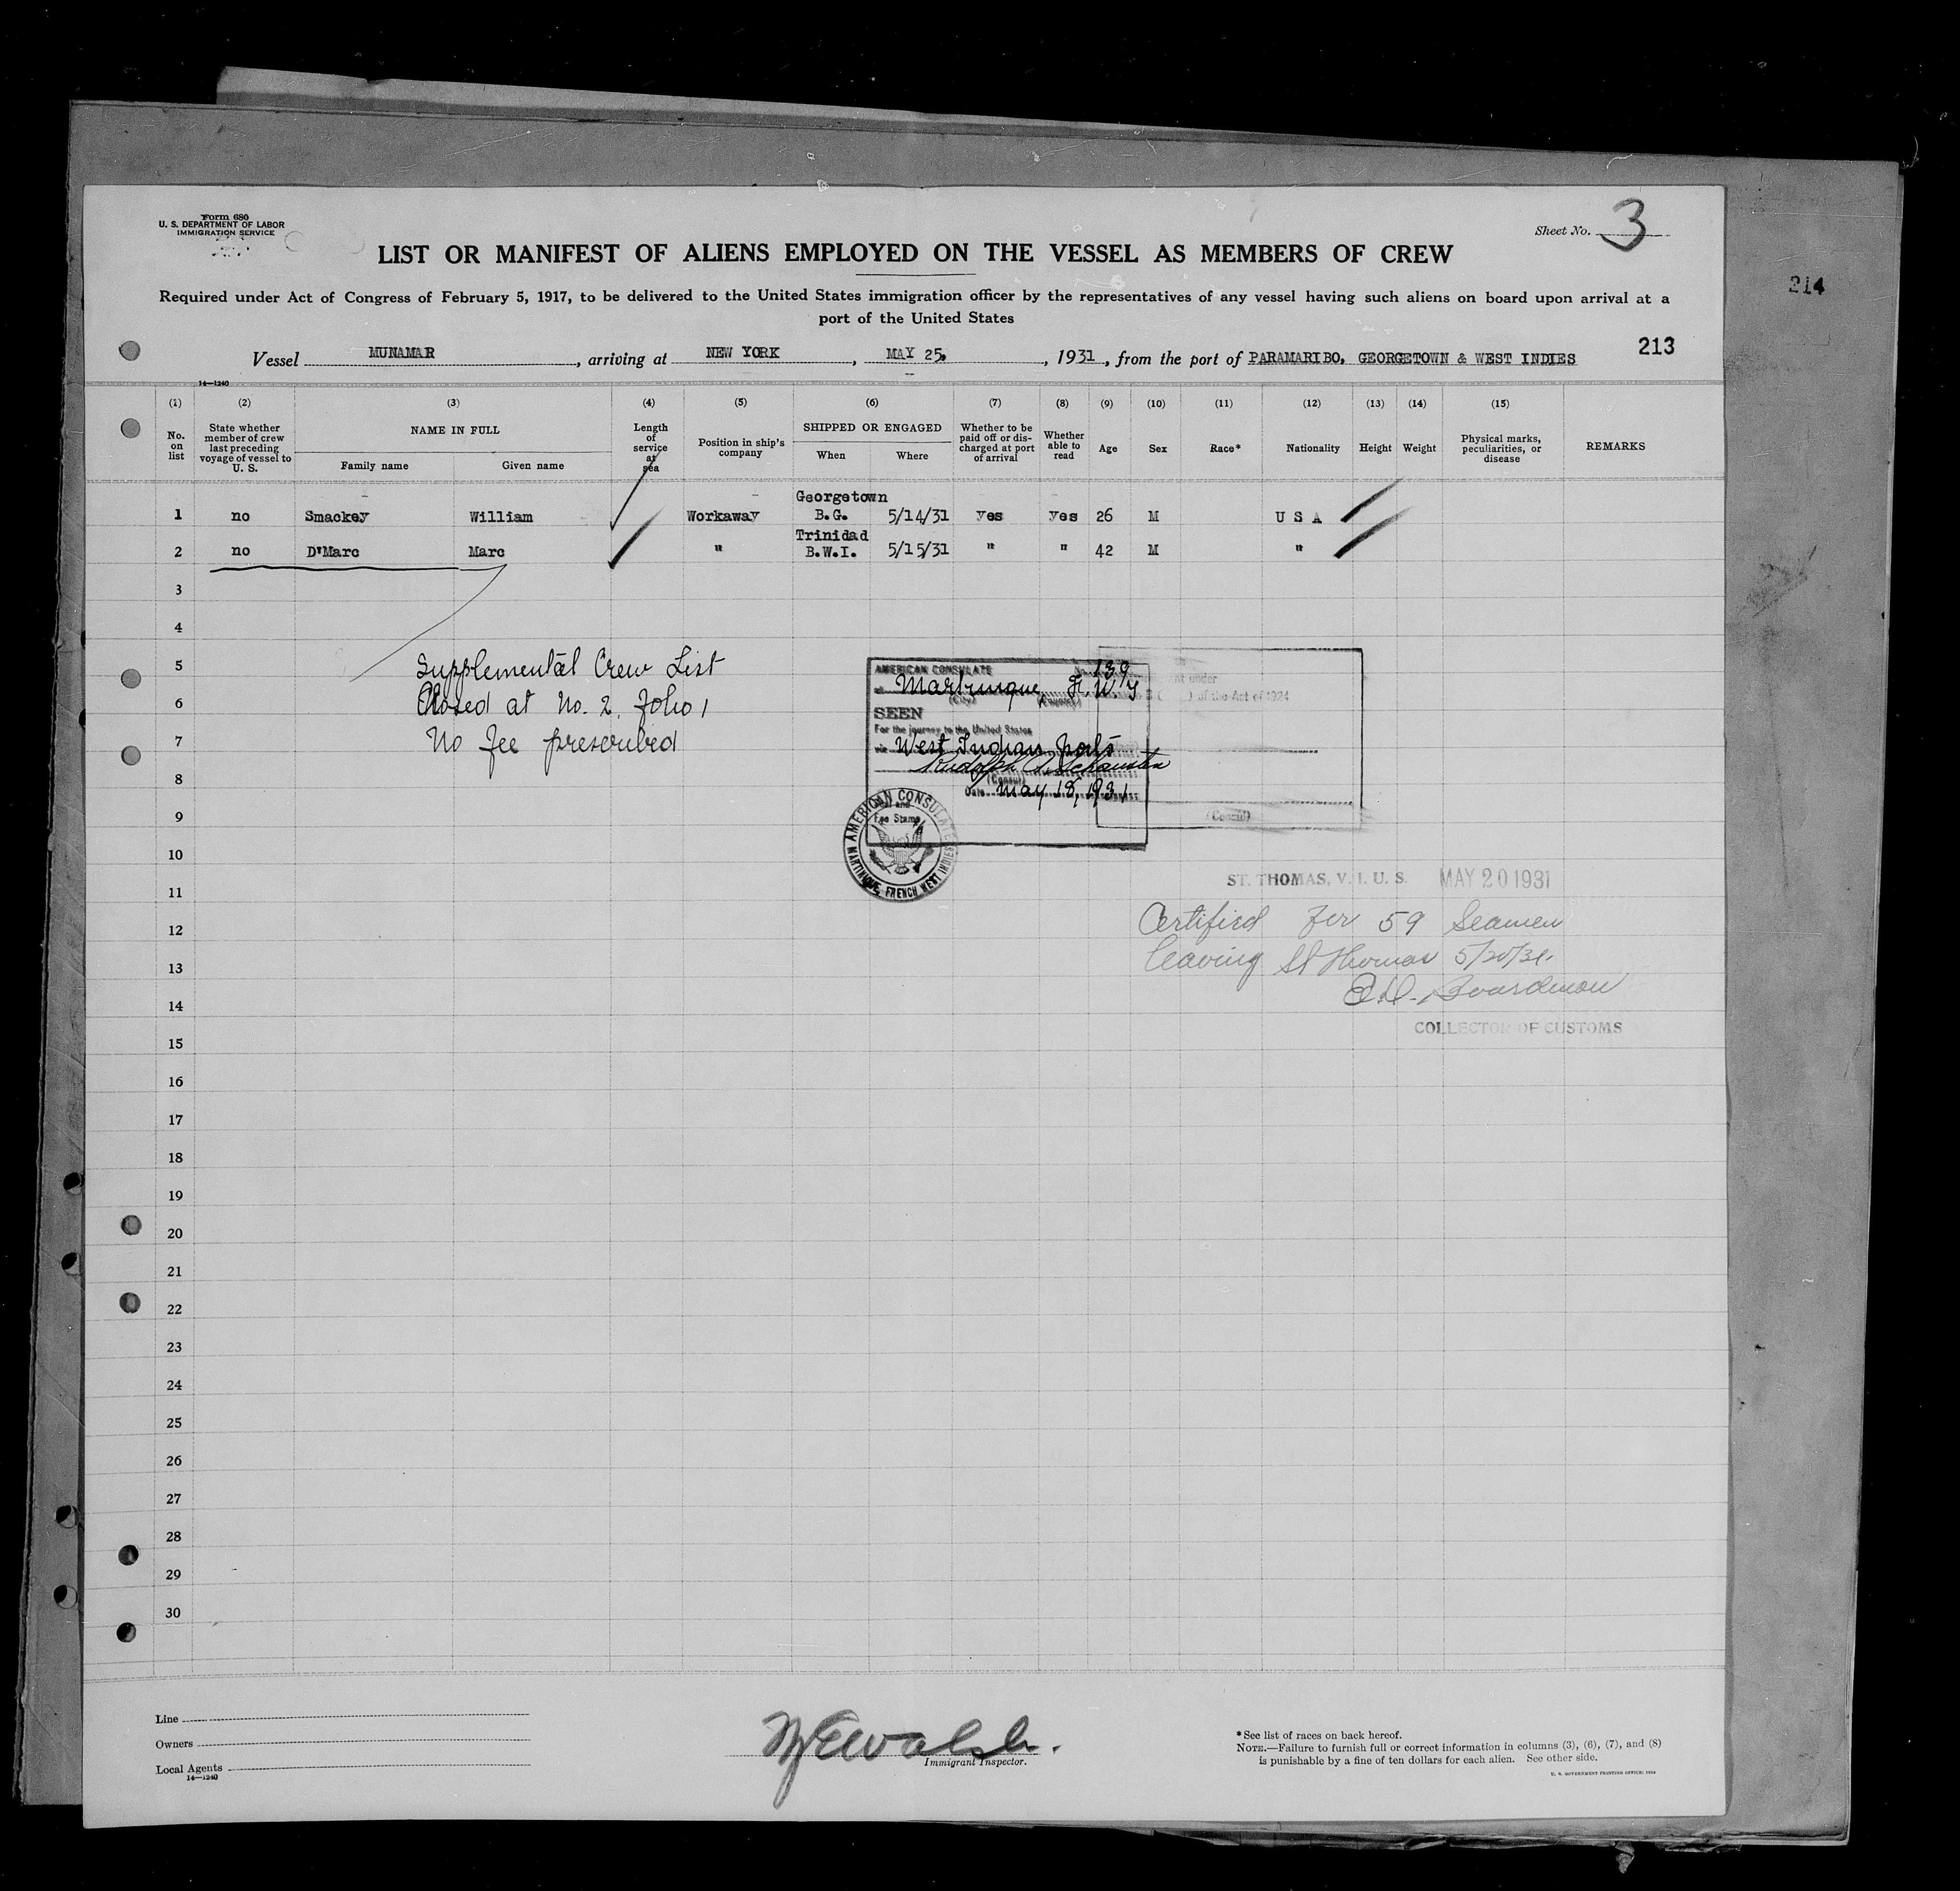 Form 680
U. S. DEPARTMENT OF LABOR
IMMIGRATION SERVICE
Sheet No. 3
LIST OR MANIFEST OF ALIENS EMPLOYED ON THE VESSEL AS MEMBERS OF CREW
Required under Act of Congress of February 5, 1917, to be delivered to the United States immigration officer by the representatives of any vessel having such aliens on board upon arrival at a
port of the United States
214
213
Vessel MUNAMAR, arriving at NEW YORK, MAY 25, 1931, from the port of PARAMARIBO, GEORGETOWN & WEST INDIES
14—1240
(1) (2) (3) (4) (5) (6) (7) (8) (9) (10) (11) (12) (13) (14) (15)
No. on list
State whether member of crew last preceding voyage of vessel to U. S.
NAME IN FULL
Family name Given name
Length of service at sea
Position in ship's company
SHIPPED OR ENGAGED
When Where
Whether to be paid off or discharged at port of arrival
Whether able to read
Age
Sex
Race*
Nationality
Height
Weight
Physical marks, peculiarities, or disease
REMARKS
Georgetown
1 no Smackey William Workaway B.G. 5/14/31 Yes Yes 26 M U S A
Trinidad
2 no D'Marc Marc " B.W.I. 5/15/31 " " 42 M "
3
4
5
6
7
8
9
10
11
12
13
14
15
16
17
18
19
20
21
22
23
24
25
26
27
28
29
30
Supplemental Crew List
Closed at No. 2, Folio 1
No fee prescribed
AMERICAN CONSULATE No. 139
at Martinique, F. W. I
(City) (Country)
SEEN
For the journey to the United States
via West Indian ports
Rudolph
(Consul)
Date May 18, 1931
Fee Stamp
AMERICAN CONSULATE
MARTINIQUE, FRENCH WEST INDIES
under
of the Act of 1924
(Consul)
ST. THOMAS, V. I. U. S. MAY 20 1931
Certified for 59 Seamen
leaving St Thomas 5/20/31.
Boardman
COLLECTOR OF CUSTOMS
Line
Owners
Local Agents
14—1240
Walsh.
Immigrant Inspector.
*See list of races on back hereof.
NOTE.—Failure to furnish full or correct information in columns (3), (6), (7), and (8)
is punishable by a fine of ten dollars for each alien. See other side.
U. S. GOVERNMENT PRINTING OFFICE: